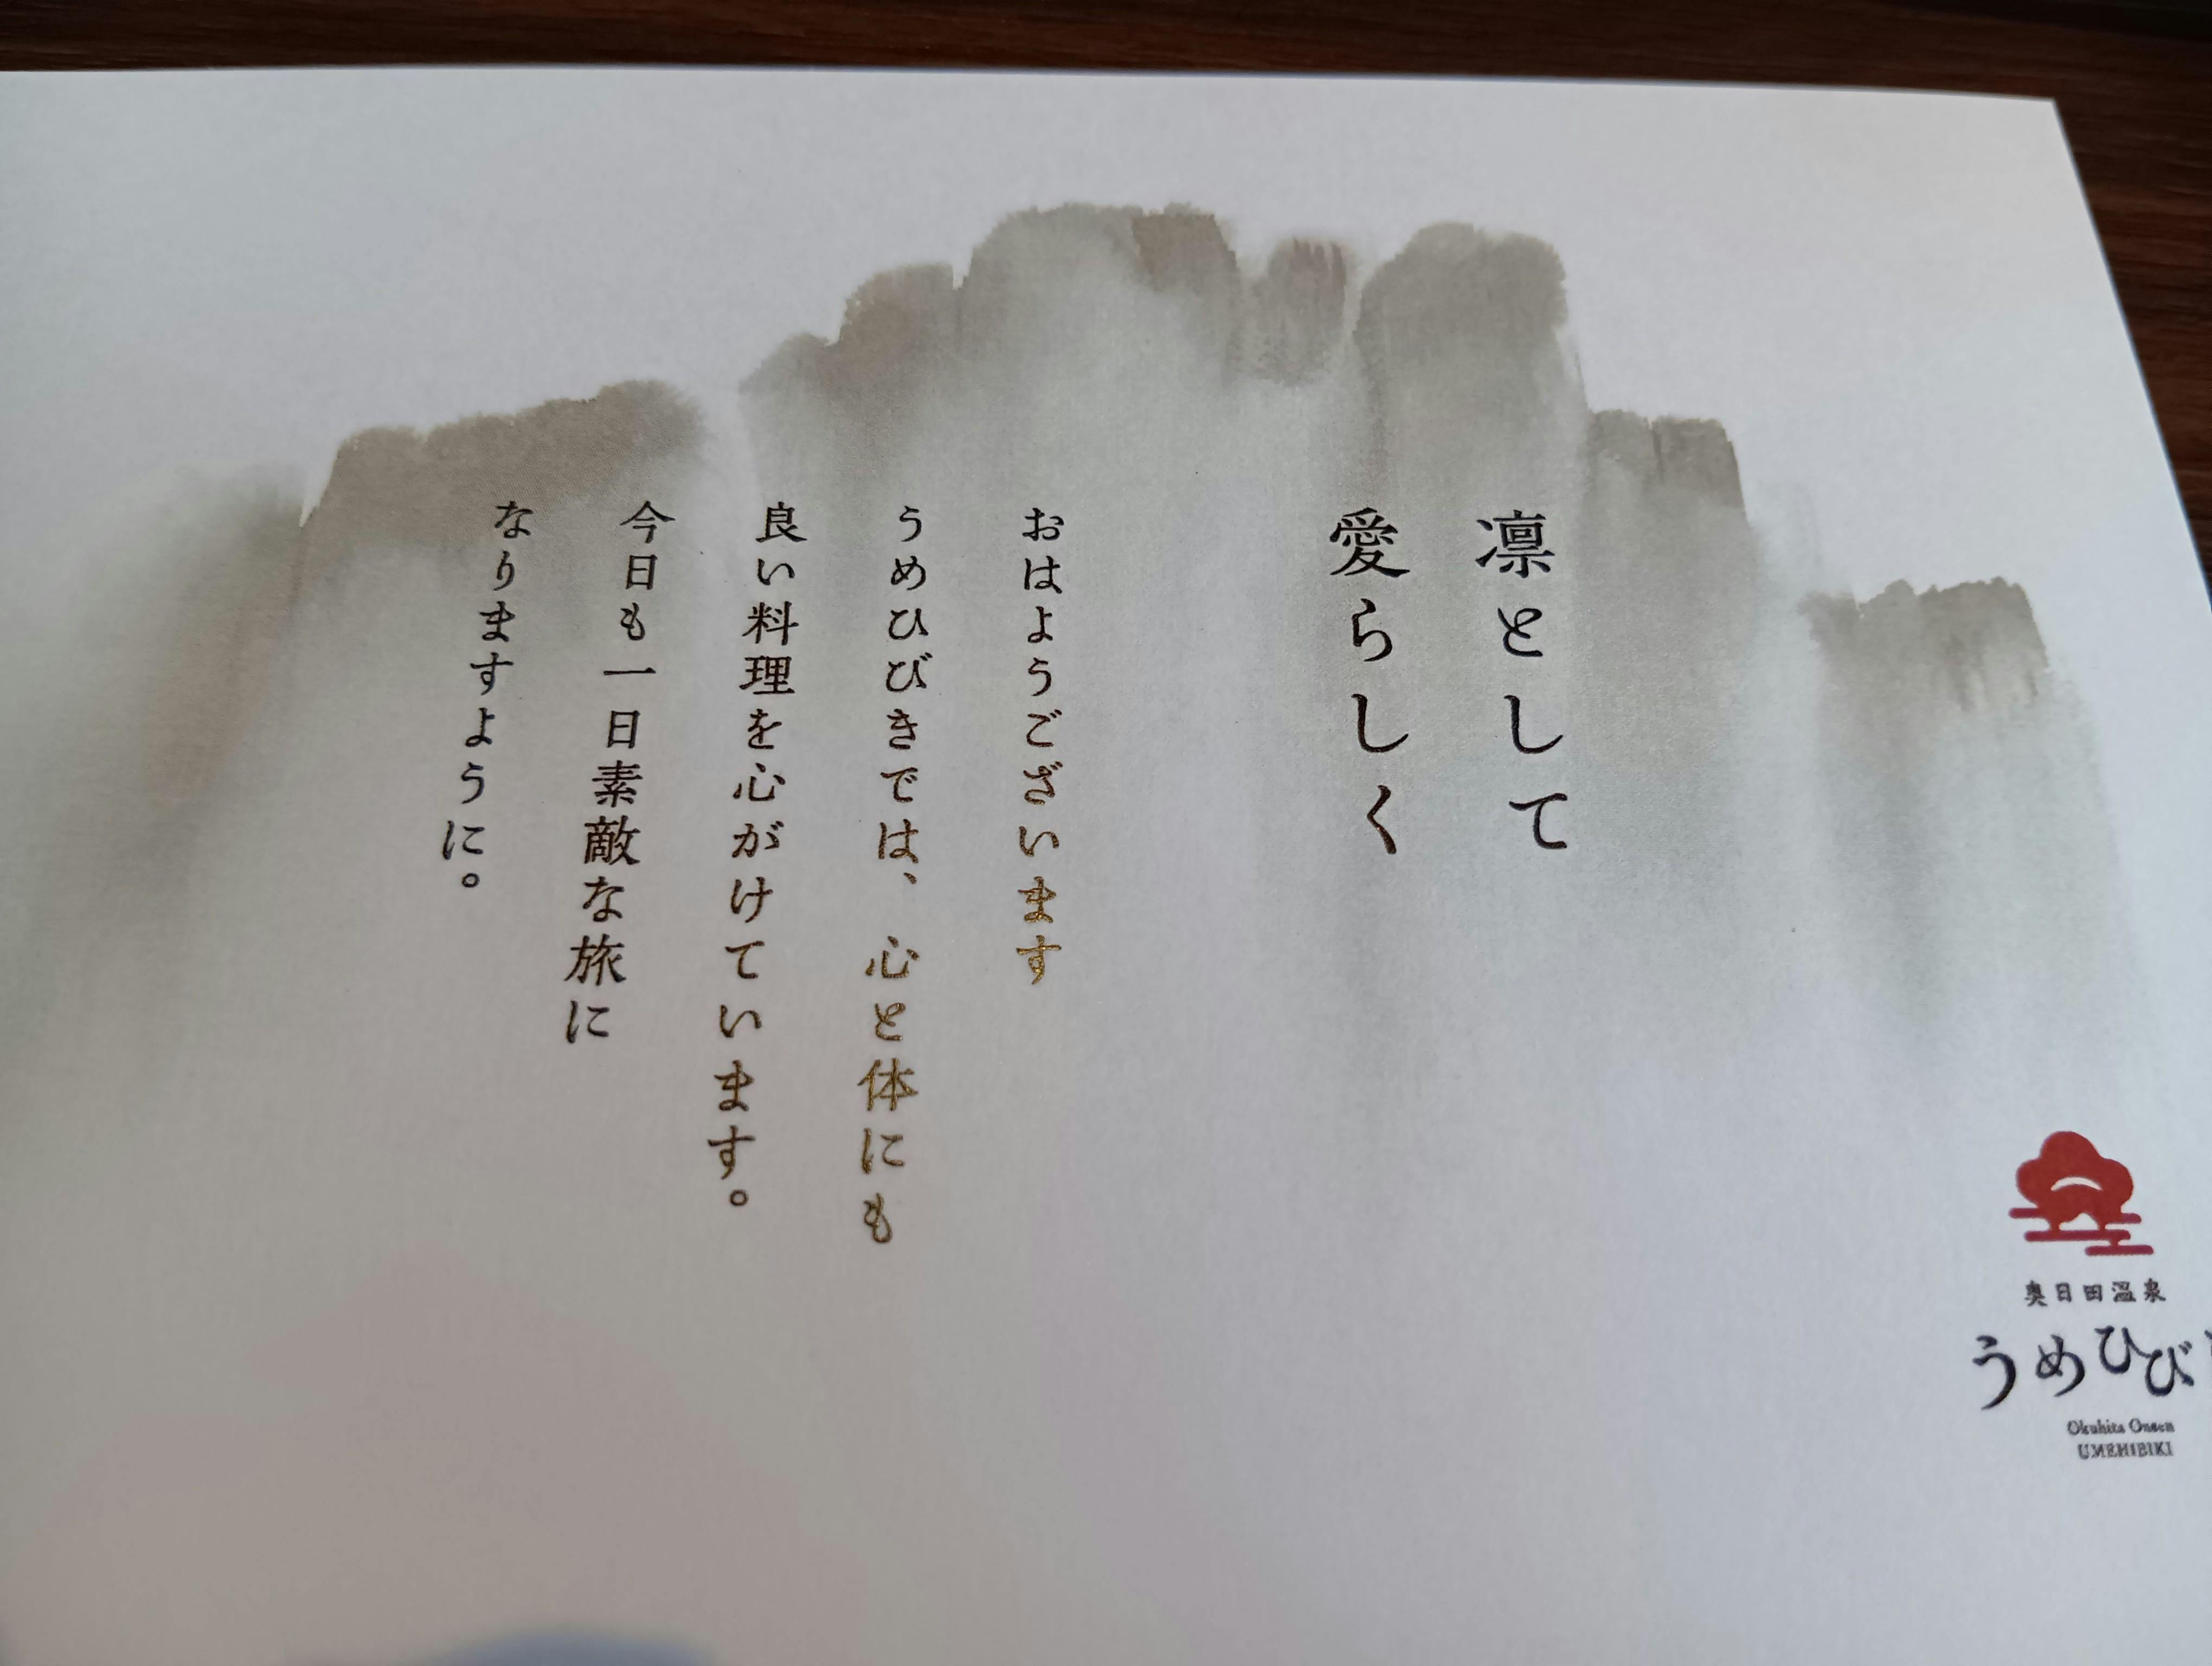 凛として
愛らしく
おはようございます
うめひびきでは、心と体にも
良い料理を心がけています。
今日も一日素敵な旅に
なりますように。
奥日田温泉
うめひび
Okuhita Onsen
UMEHIBIKI